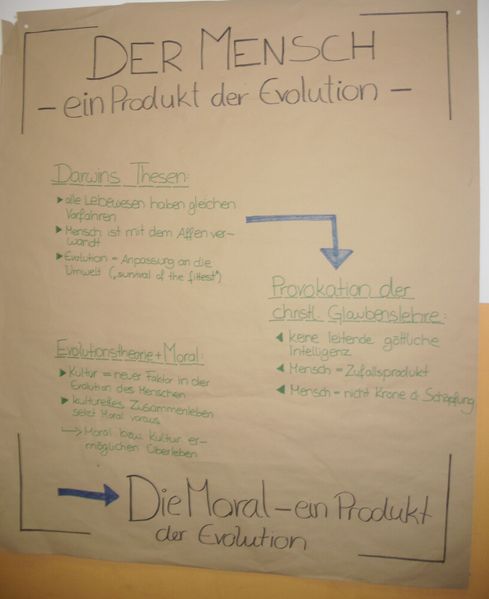 DER MENSCH
- ein Produkt der Evolution -
Darwins Thesen:
▶ alle Lebewesen haben gleichen
Vorfahren
▶ Mensch ist mit dem Affen ver-
wandt
▶ Evolution = Anpassung an die
Umwelt ("survival of the fittest")
Provokation der
christl. Glaubenslehre:
◀ keine leitende göttliche
Intelligenz
◀ Mensch = Zufallsprodukt
◀ Mensch = nicht Krone d. Schöpfung
Evolutionstheorie + Moral:
▶ Kultur = neuer Faktor in der
Evolution des Menschen
▶ kulturelles Zusammenleben
setzt Moral voraus
↳ Moral bzw. Kultur er-
möglichen Überleben
Die Moral - ein Produkt
der Evolution